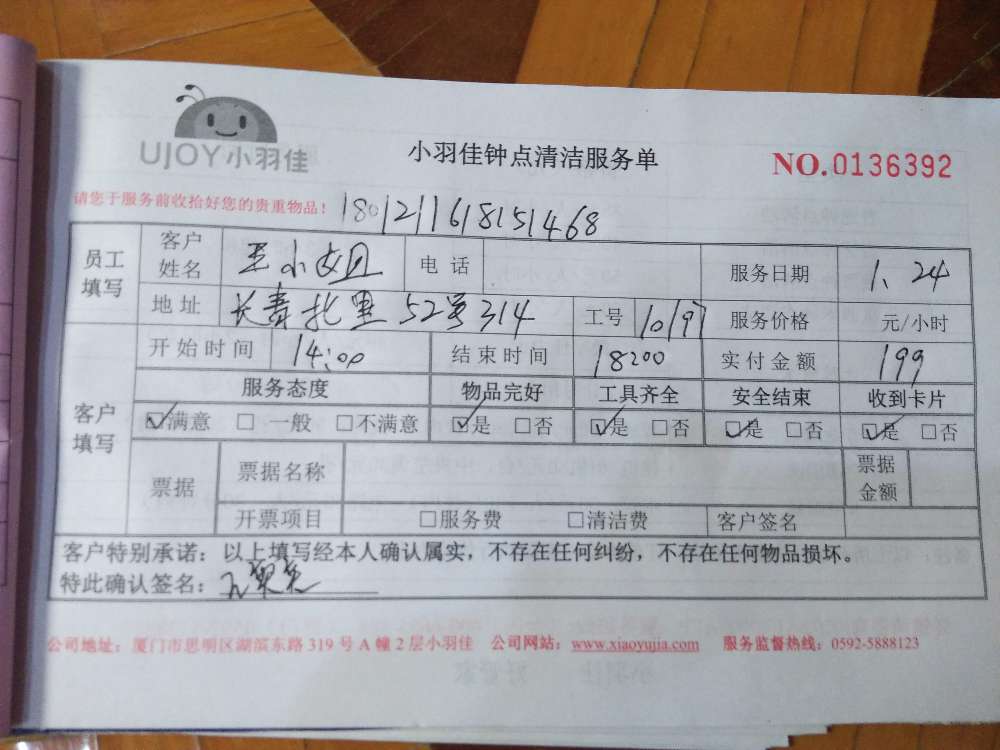 UJOY小羽佳
小羽佳钟点清洁服务单
NO.0136392
请您于服务前收拾好您的贵重物品！
180121168151468
员工填写 客户姓名 王小姐 电话 服务日期 1.24
地址 长青北里52号314 工号 10197 服务价格 元/小时
开始时间 14:00 结束时间 18:00 实付金额 199
客户填写 服务态度 物品完好 工具齐全 安全结束 收到卡片
☑满意 □一般 □不满意 ☑是 □否 ☑是 □否 ☑是 □否 ☑是 □否
票据 票据名称 票据金额
开票项目 □服务费 □清洁费 客户签名
客户特别承诺：以上填写经本人确认属实，不存在任何纠纷，不存在任何物品损坏。
特此确认签名：
公司地址：厦门市思明区湖滨东路319号A幢2层小羽佳 公司网站：www.xiaoyujia.com 服务监督热线：0592-5888123